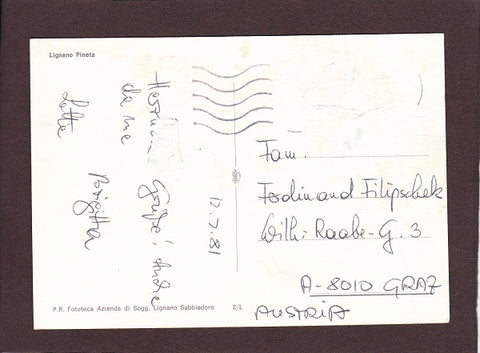 Lignano Pineta
17.7.81
Grüße!
Lotte
Brigitta
Fam.
Ferdinand Filipschek
Wilh. Raabe-G. 3
A-8010 GRAZ
AUSTRIA
P.R. Fototeca Azienda di Sogg. Lignano Sabbiadoro 2/L